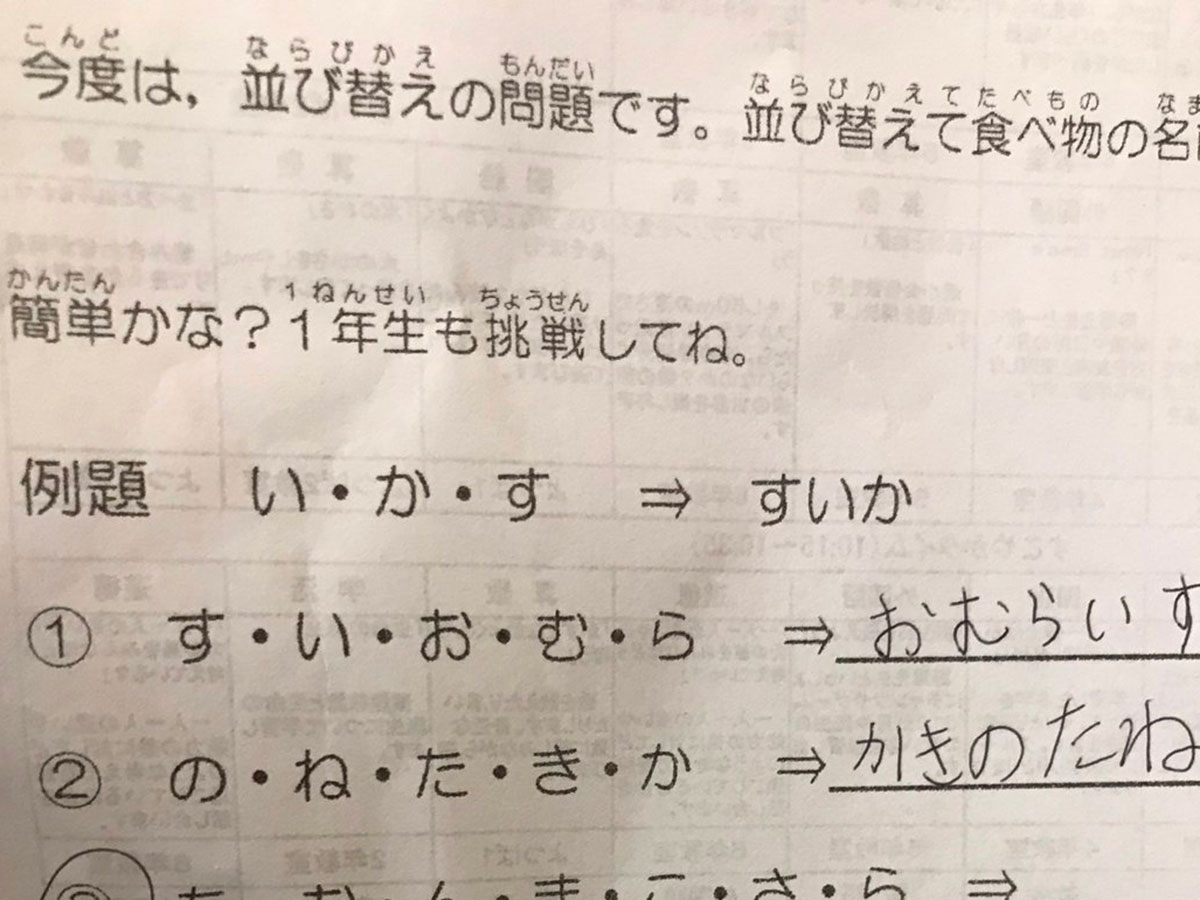 こんど ならびかえ もんだい ならびかえてたべもの
今度は，並び替えの問題です。並び替えて食べ物の名
かんたん 1ねんせい ちょうせん
簡単かな？1年生も挑戦してね。
例題 い・か・す ⇒ すいか
① す・い・お・む・ら ⇒ おむらいす
② の・ね・た・き・か ⇒ かきのたね
ま・こ・さ・ら ⇒